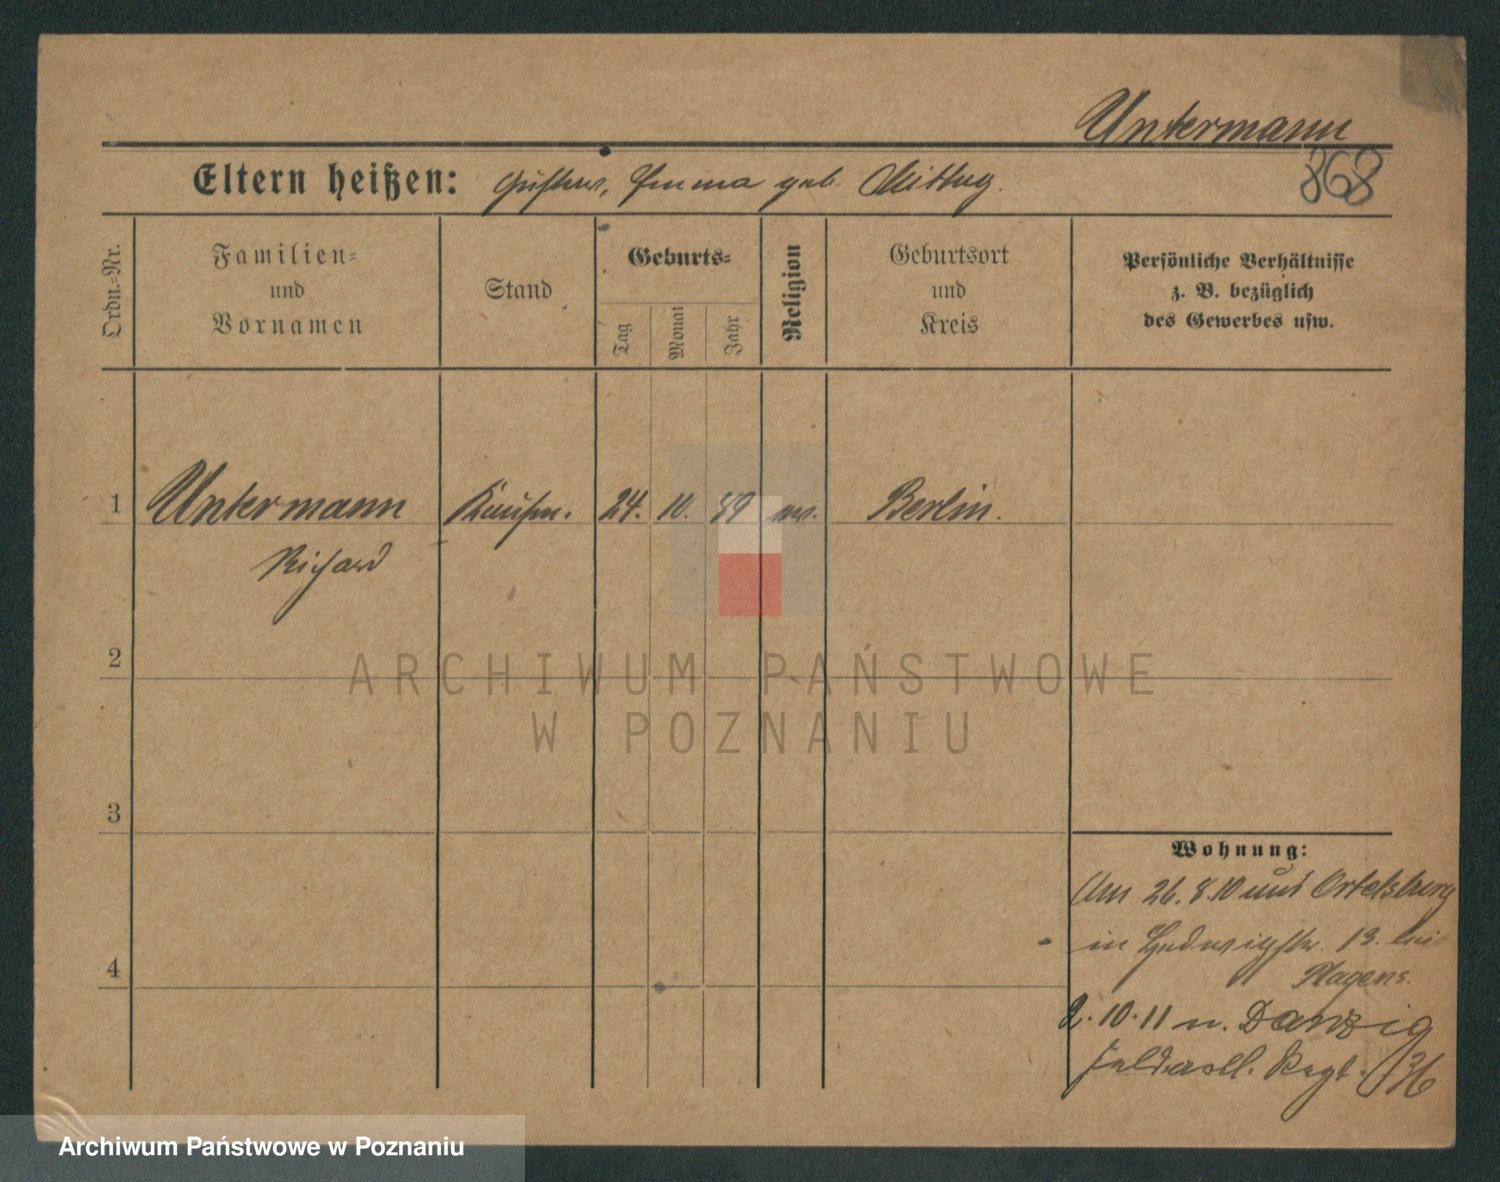 Untermann
868
Eltern heißen: Gustav, Emma geb. Mittag.
Ordn.-Nr.
Familien-
und
Vornamen
Stand
Geburts-
Tag
Monat
Jahr
Religion
Geburtsort
und
Kreis
Persönliche Verhältnisse
z. B. bezüglich
des Gewerbes usw.
1 Untermann Kaufm. 24. 10. 89 ev. Berlin.
Richard
2
3
4
Wohnung:
Am 26. 8. 10 und Ortelsburg
in Hedwigstr. 13. bei
Plagens.
2. 10. 11 n. Danzig
Feldartll. Regt. 36
ARCHIWUM PAŃSTWOWE
W POZNANIU
Archiwum Państwowe w Poznaniu